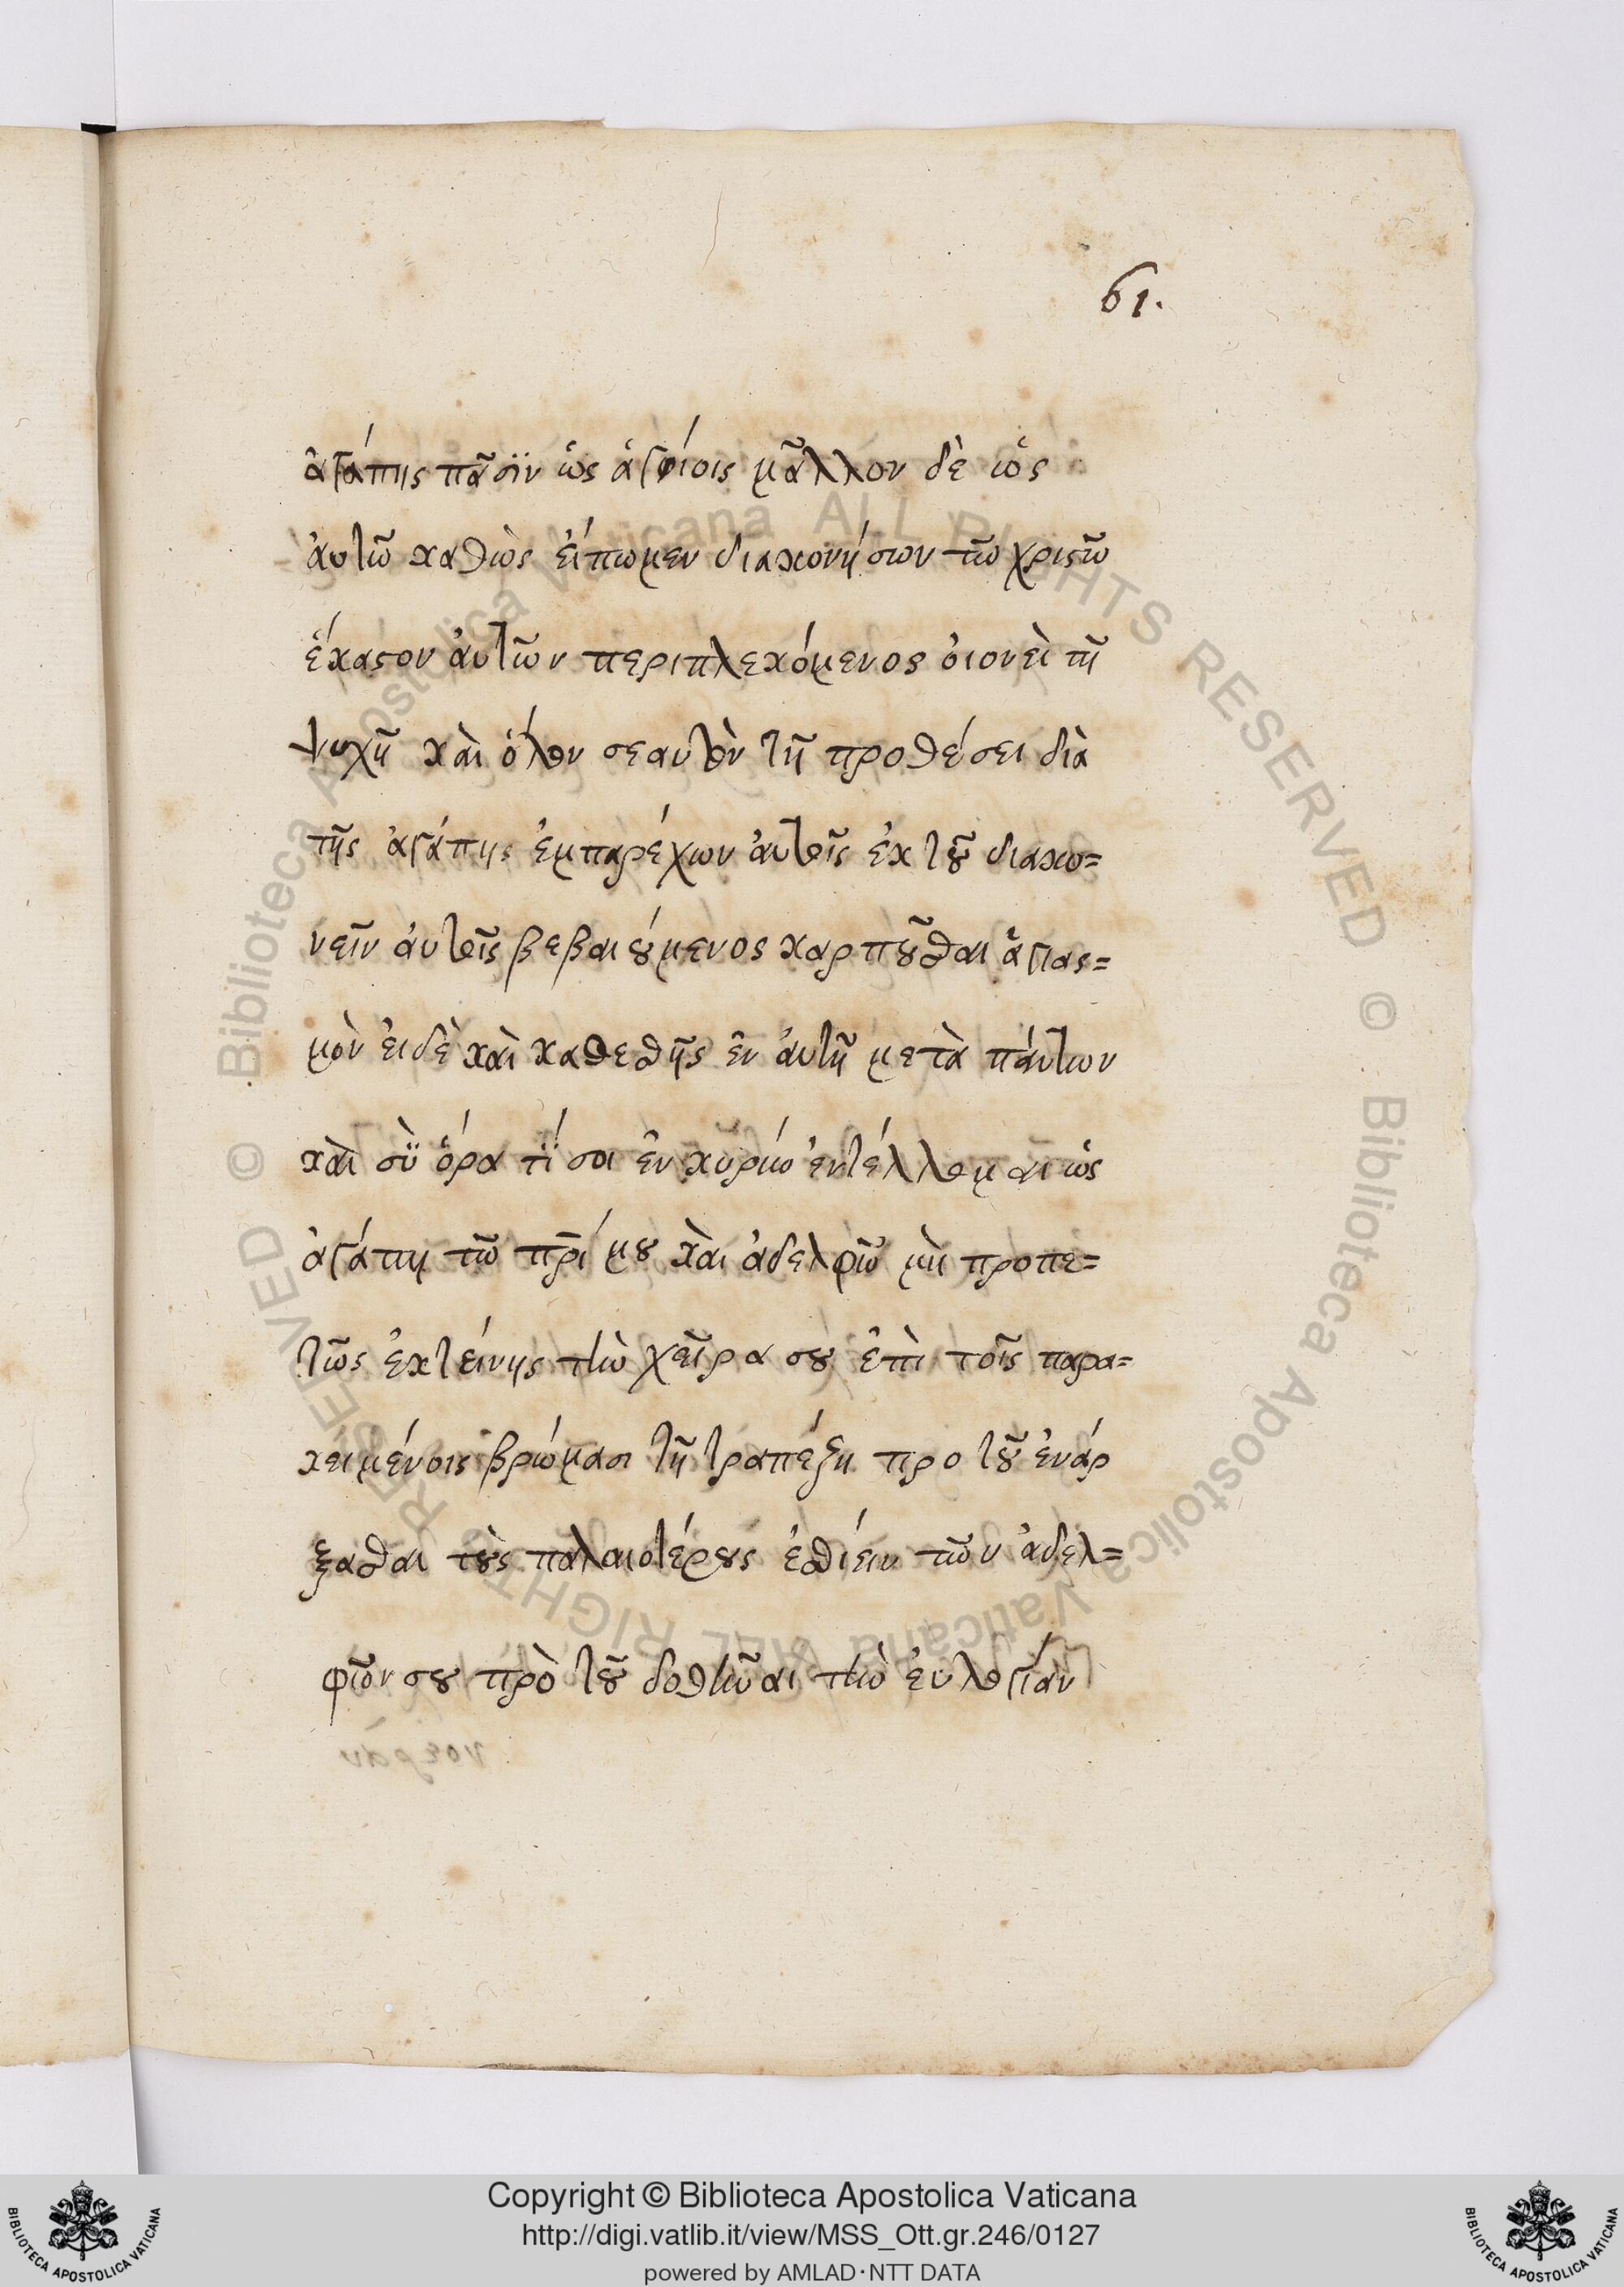 61.
ἀγάπης πᾶσϊν ὡς ἁγίοις μᾶλλον δὲ ὡς
ἀυτῶ καθὼς ἐίπωμεν διακονήσων τῶ χριστῶ
ἕκαστον ἀυτῶν περιπλεκόμενος ὁιονεὶ τῆ
ψυχῆ κὰι ὅλον σεαυτὸν τῆ προθέσει διὰ
τῆς ἀγάπης ἐμπαρέχων ἀυτοῖς ἐκ τοῦ διακο=
νεῖν ἀυτοῖς βεβαιούμενος καρποῦσθαι ἁγιασ=
μὸν ἐιδὲ κὰι καθεσθῆς ἐν ἀυτῆ μετὰ πάντων
κὰι σὺ̈ ὅρα τί̈ σοι ἐν κυρίω ἐντέλλομαι ὡς
ἀγάπη τῶ πρ̅ι μου κὰι ἀδελφῶ μὴ προπε=
τῶς ἐκτείνης τὴν χεῖρα σου ἐπὶ τοῖς παρα=
κειμένοις βρώμασι τῆ τραπέζη προ τοῦ ἐνάρ
ξασθαι τοὺς παλαιοτέρους ἐσθίειν τῶν ἀδελ=
φῶν σου πρὸ τοῦ δοθῆναι τὴν ἐυλογίαν
Copyright © Biblioteca Apostolica Vaticana
http://digi.vatlib.it/view/MSS_Ott.gr.246/0127
powered by AMLAD·NTT DATA